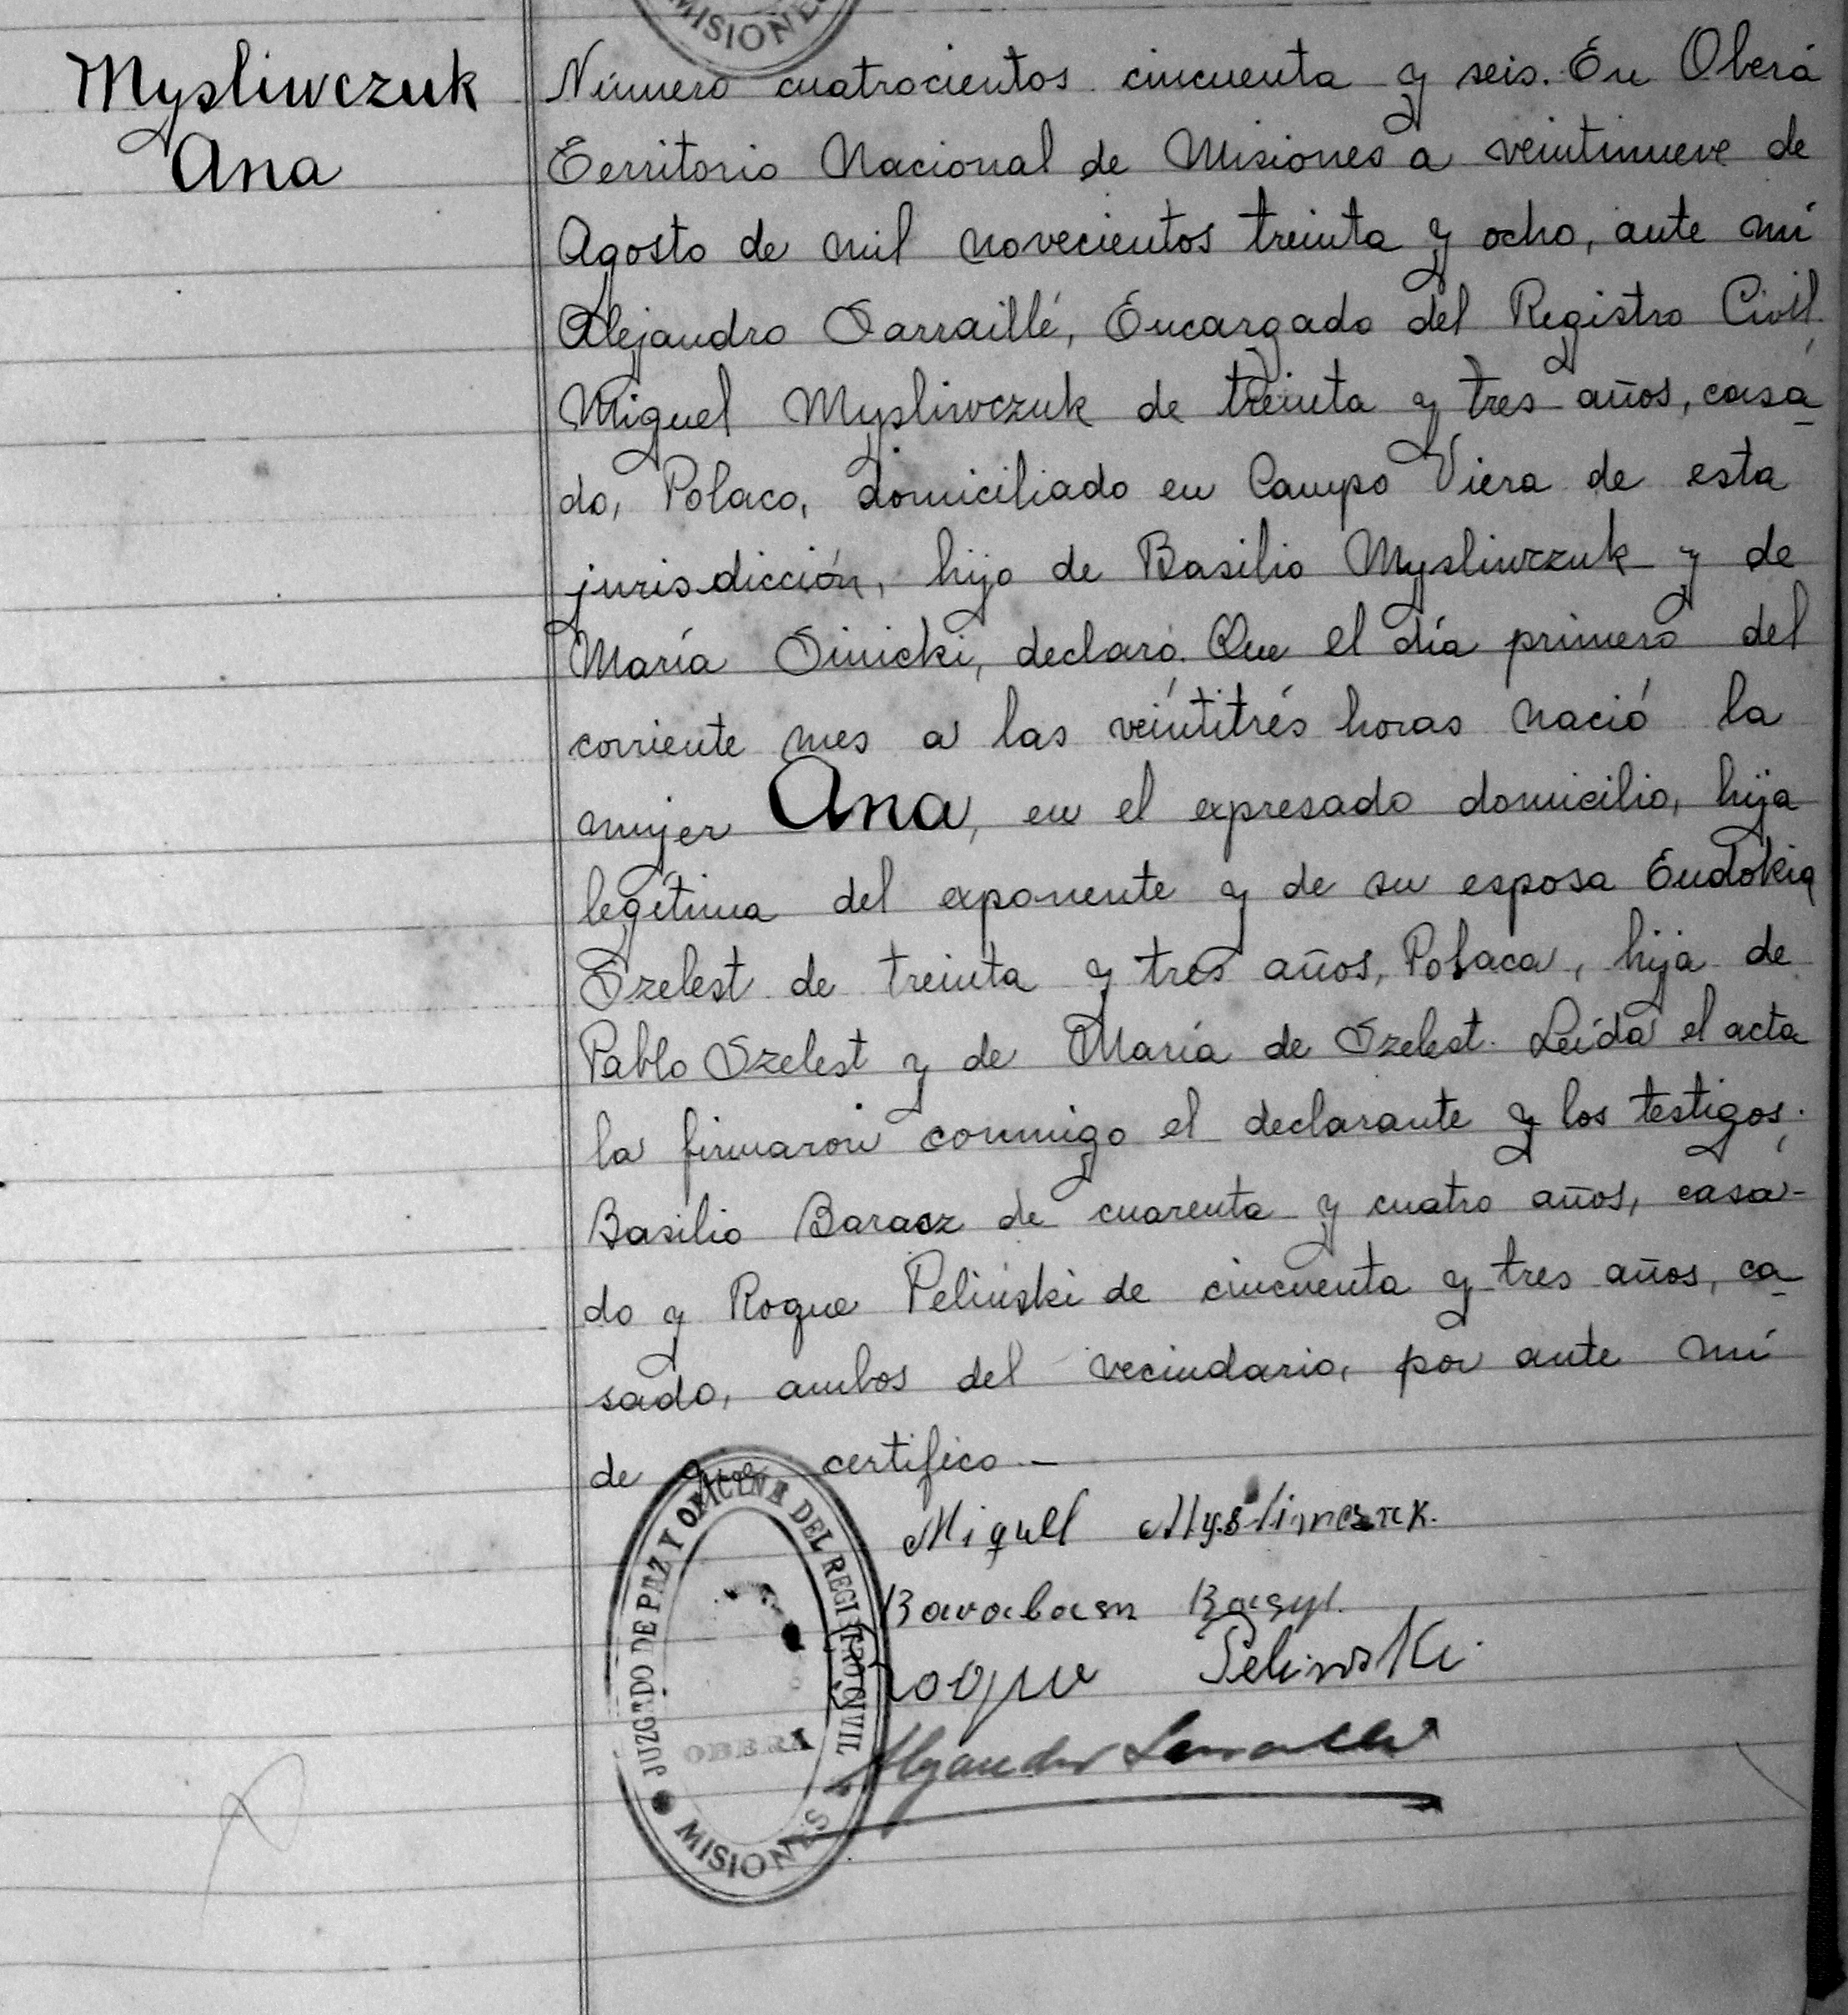 MISIONES
Mysliwczuk
Ana
Número cuatrocientos cincuenta y seis. En Oberá
Territorio Nacional de Misiones a veintinueve de
Agosto de mil novecientos treinta y ocho, ante mi
Alejandro Sarraillé, Encargado del Registro Civil
Miguel Mysliwczuk de treinta y tres años, casa-
do, Polaco, domiciliado en Campo Viera de esta
jurisdicción, hijo de Basilio Mysliwczuk y de
María Sinicki, declaró. Que el día primero del
corriente mes a las veintitrés horas nació la
mujer Ana, en el expresado domicilio, hija
legítima del exponente y de su esposa Eudokia
Szelest de treinta y tres años, Polaca, hija de
Pablo Szelest y de María de Szelest. Leída el acta
la firmaron conmigo el declarante y los testigos.
Basilio Baracz de cuarenta y cuatro años, casa-
do y Roque Pelinski de cincuenta y tres años, ca-
sado, ambos del vecindario, por ante mí
de que certifico —
Miguel Mysliwczuk.
Basyl.
Roque Pelinski
Alejandro Sarraillé
JUZGADO DE PAZ Y OFICINA DEL REGISTRO CIVIL
OBERA
MISIONES